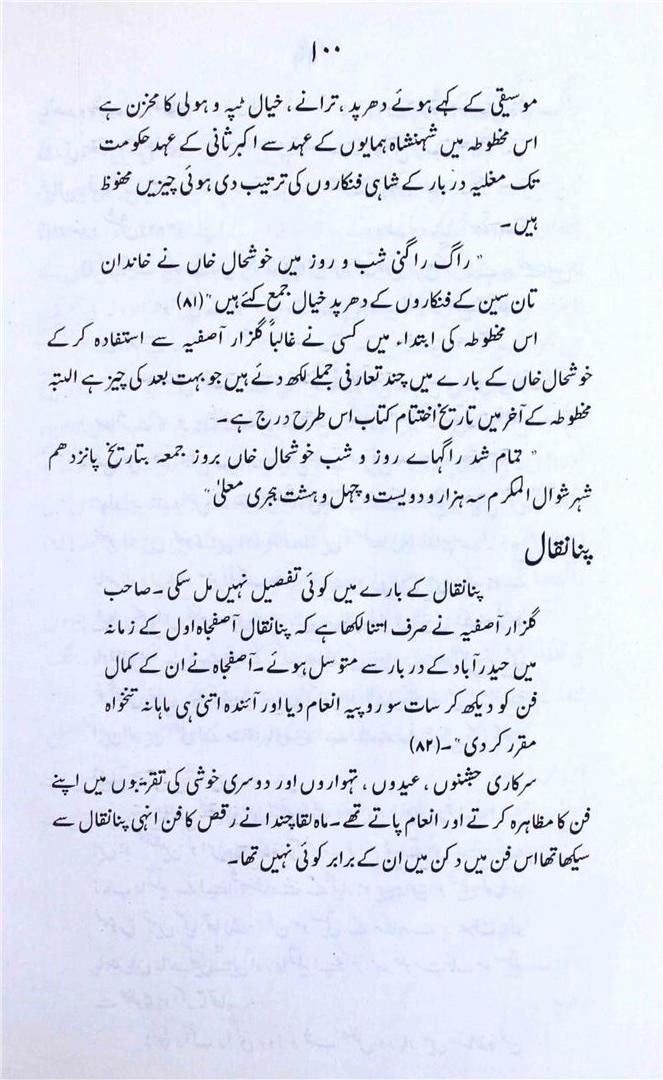 ۱۰۰
موسیقی کے کہے ہوئے دھرپد، ترانے، خیال ٹپہ و ہولی کا مخزن ہے
اس مخطوطہ میں شہنشاہ ہمایوں کے عہد سے اکبر ثانی کے عہد حکومت
تک مغلیہ دربار کے شاہی فنکاروں کی ترتیب دی ہوئی چیزیں محفوظ
ہیں۔
" راگ راگنی شب و روز میں خوشحال خاں نے خاندان
تان سین کے فنکاروں کے دھرپد خیال جمع کئے ہیں "(۸۱)
اس مخطوطہ کی ابتداء میں کسی نے غالباً گلزار آصفیہ سے استفادہ کر کے
خوشحال خاں کے بارے میں چند تعارفی جملے لکھ دئے ہیں جو بہت بعد کی چیز ہے البتہ
مخطوطہ کے آخر میں تاریخ اختتام کتاب اس طرح درج ہے۔
" تمام شد راگہاے روز و شب خوشحال خاں بروز جمعہ بتاریخ پانزدھم
شہر شوال المکرم سہ ہزار و دویست و چہل و ہشت ہجری معلیٰ"
پنا نقال
پنا نقال کے بارے میں کوئی تفصیل نہیں مل سکی۔ صاحب
گلزار آصفیہ نے صرف اتنا لکھا ہے کہ پنا نقال آصفجاہ اول کے زمانہ
میں حیدرآباد کے دربار سے متوسل ہوئے۔ آصفجاہ نے ان کے کمال
فن کو دیکھ کر سات سو روپیہ انعام دیا اور آئندہ اتنی ہی ماہانہ تنخواہ
مقرر کر دی"۔(۸۲)
سرکاری جشنوں، عیدوں، تہواروں اور دوسری خوشی کی تقریبوں میں اپنے
فن کا مظاہرہ کرتے اور انعام پاتے تھے۔ ماہ لقا چندا نے رقص کا فن انہی پنا نقال سے
سیکھا تھا اس فن میں دکن میں ان کے برابر کوئی نہیں تھا۔